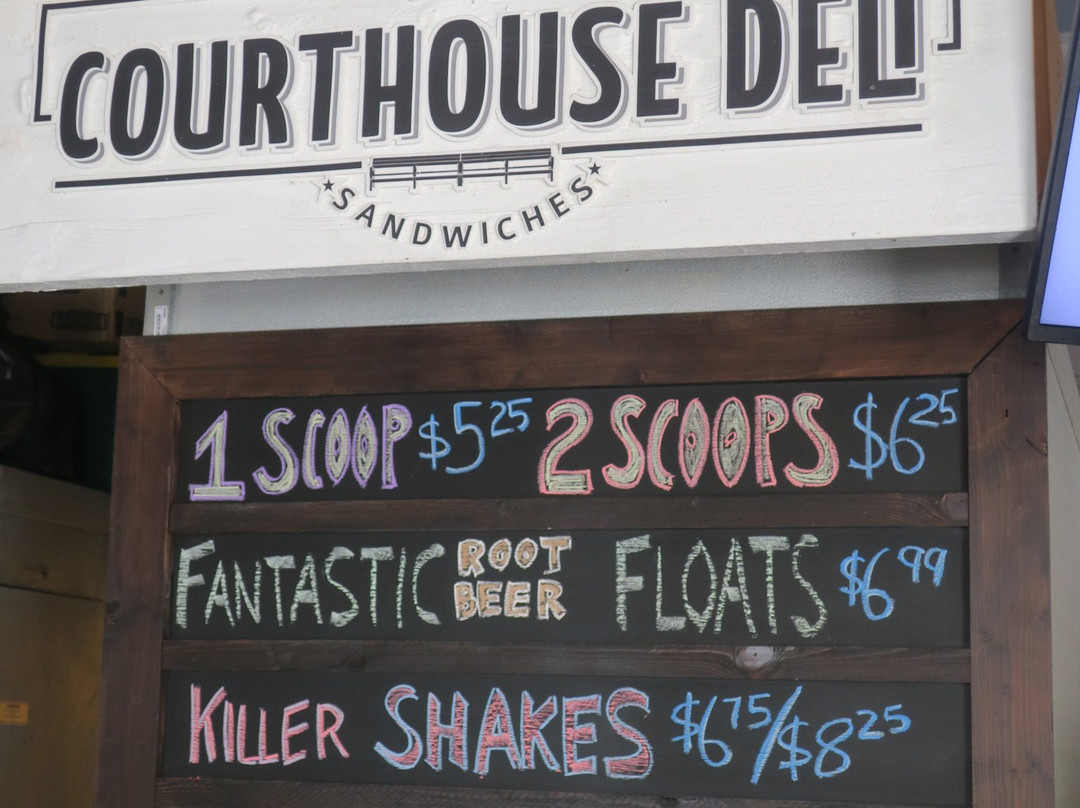 COURTHOUSE DELI
SANDWICHES
1 SCOOP $5 25 2 SCOOPS $6 25
FANTASTIC ROOT BEER FLOATS $6 99
KILLER SHAKES $6 75/$8 25